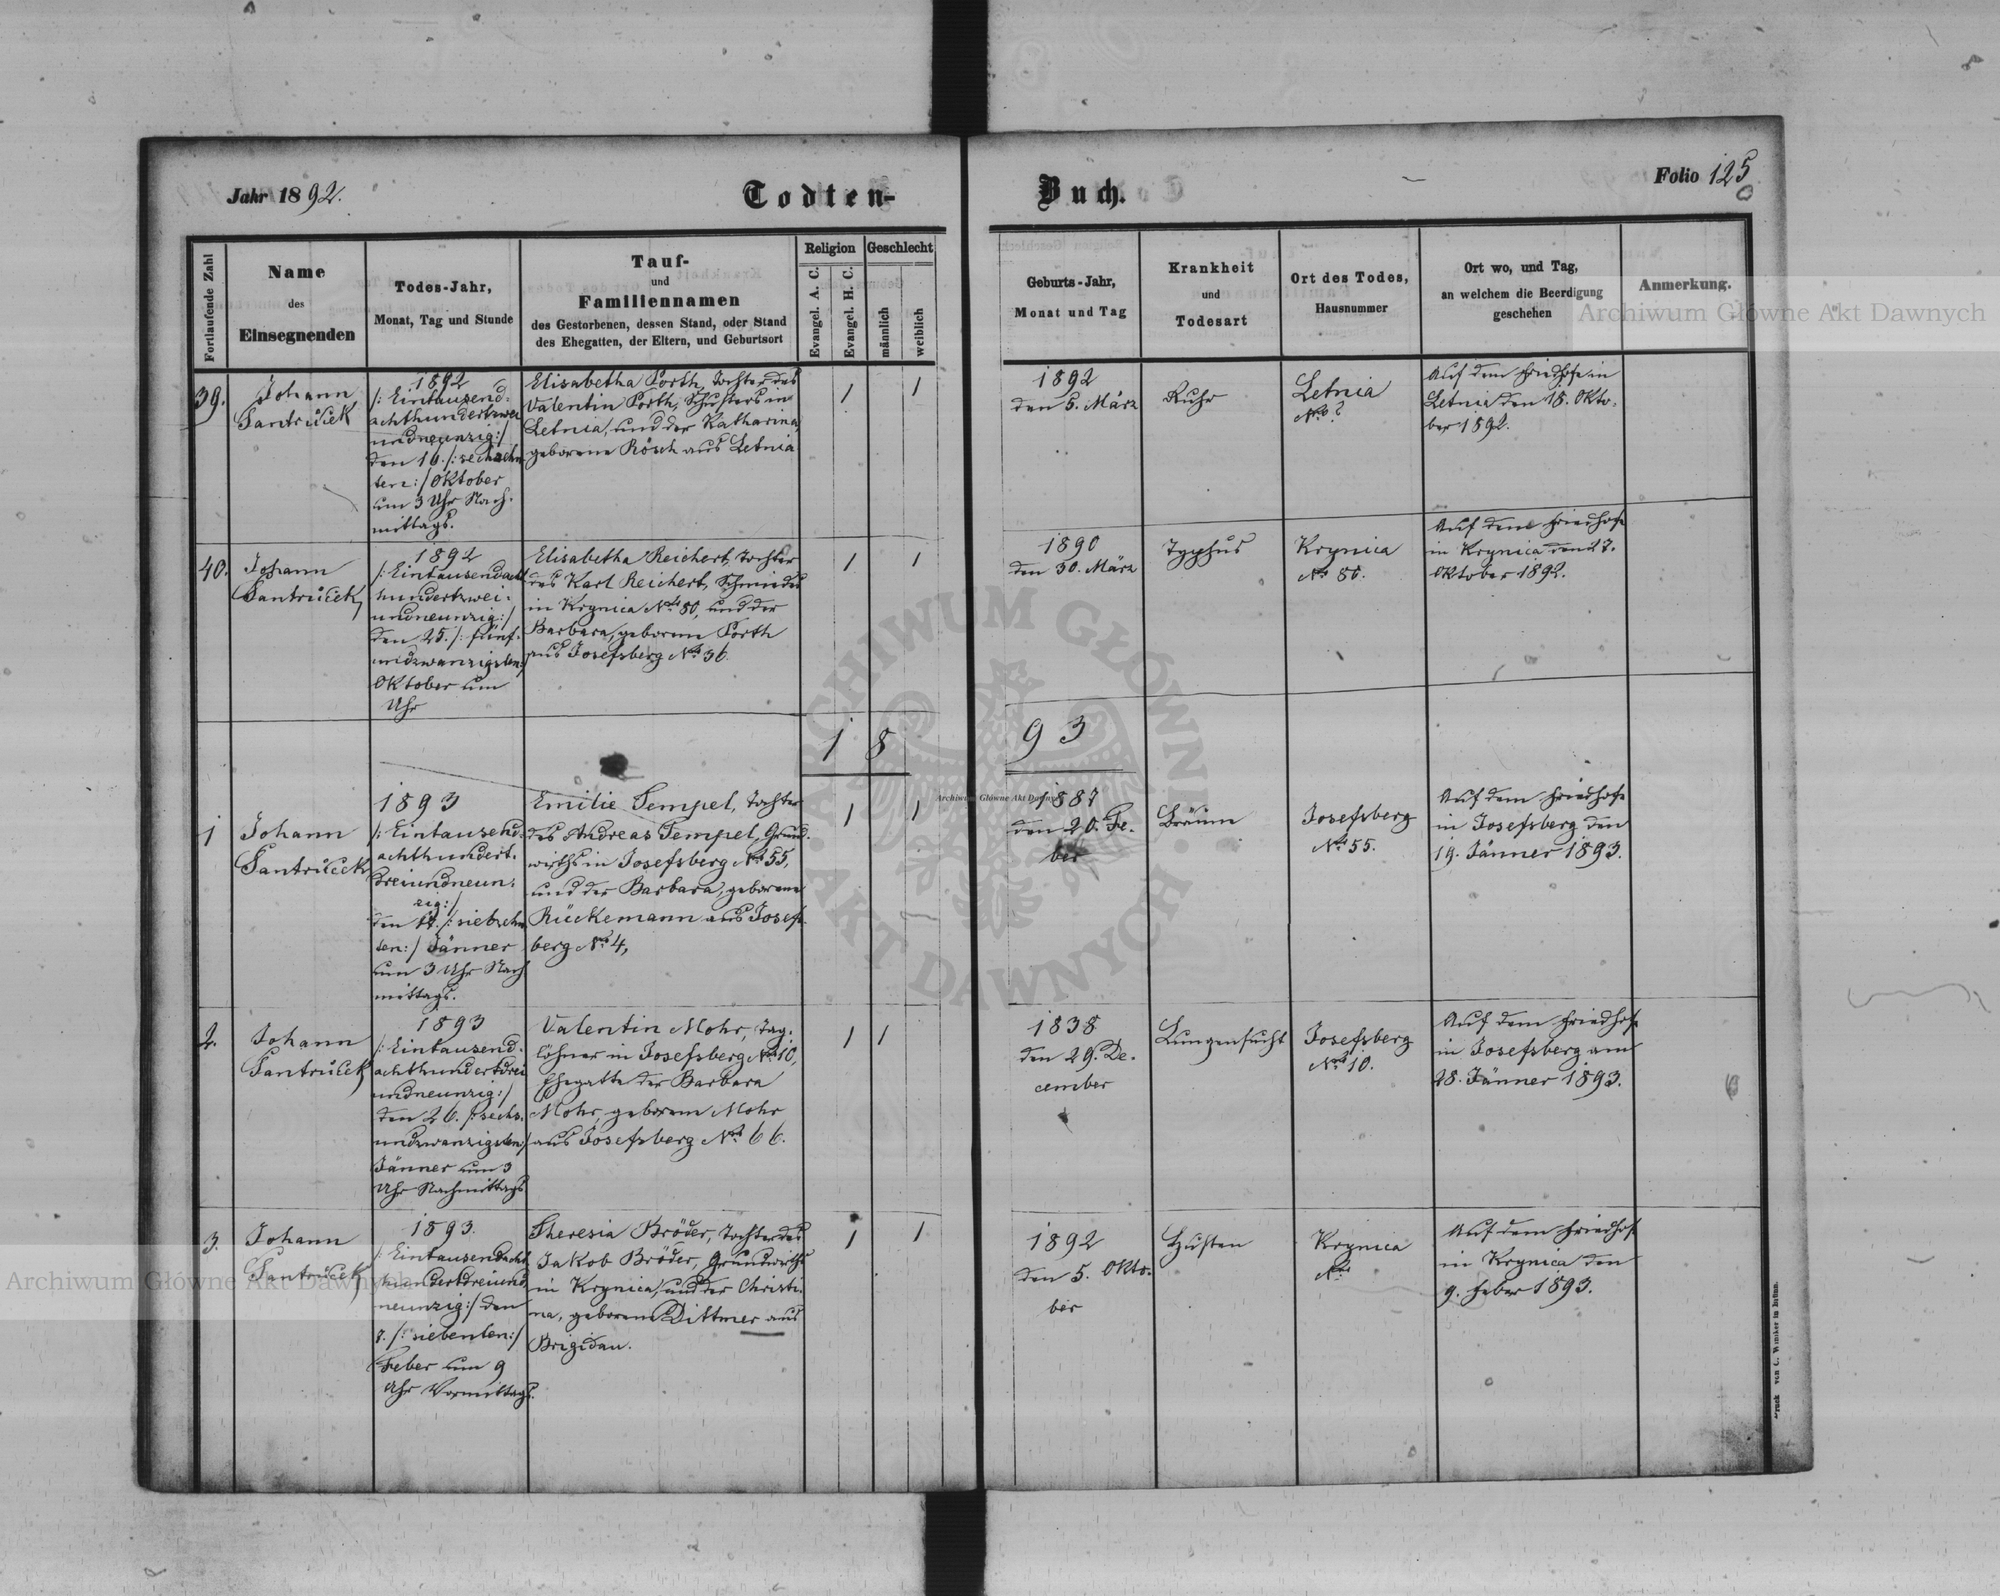 Jahr 1892.
Todten-
Buch.
Folio 125
Fortlaufende Zahl
Name
des
Einsegnenden
Todes-Jahr,
Monat, Tag und Stunde
Tauf-
und
Familiennamen
des Gestorbenen, dessen Stand, oder Stand
des Ehegatten, der Eltern, und Geburtsort
Religion
Evangel. A. C.
Evangel. H. C.
Geschlecht
männlich
weiblich
Geburts-Jahr,
Monat und Tag
Krankheit
und
Todesart
Ort des Todes,
Hausnummer
Ort wo, und Tag,
an welchem die Beerdigung
geschehen
Anmerkung.
39.
Johann
Santrůček
1892
/: Eintausend-
achthundertzwei
undneunzig:/
den 16. /: sechzehn
ten:/ Oktober
um 3 Uhr Nach-
mittags.
Elisabetha Porth, Tochter des
Valentin Porth, Schusters in
Letnia, und der Katharina,
geborene Rösch aus Letnia
1
1
1892
den 5. März
Ruhr
Letnia
No ?
Auf dem Friedhofe in
Letnia den 18. Okto-
ber 1892.
40.
Johann
Santrůček
1892
/: Eintausendacht
hundertzwei-
undneunzig:/
den 25. /: fünf-
undzwanzigsten:/
Oktober um
Uhr
Elisabetha Reichert, Tochter
des Karl Reichert, Schmiedes
in Krynica No 80, und der
Barbara, geborene Porth
aus Josefsberg No 36.
1
1
1890
den 30. März
Typhus
Krynica
No 80.
Auf dem Friedhofe
in Krynica den 27.
Oktober 1892.
1 8 9 3
1
Johann
Santrůček
1893
/: Eintausend-
achthundert-
dreiundneun-
zig:/
den 17. /: siebzehn
ten:/ Jänner
um 3 Uhr Nach
mittags.
Emilie Tempel, Tochter
des Andreas Tempel, Grund-
wirths in Josefsberg No 55,
und der Barbara, geborene
Rückemann aus Josefs-
berg No 4,
1
1
1887
den 20. Fe-
ber
Bräune
Josefsberg
No 55.
Auf dem Friedhofe
in Josefsberg den
19. Jänner 1893.
2.
Johann
Santrůček
1893
/: Eintausend-
achthundertdrei
undneunzig:/
den 26. /: sechs-
undzwanzigsten:/
Jänner um 3
Uhr Nachmittags
Valentin Mohr, Tag-
löhner in Josefsberg No 10,
Ehegatte der Barbara
Mohr, geborene Mohr
aus Josefsberg No 66.
1
1
1838
den 29. De-
cember
Lungensucht
Josefsberg
No 10.
Auf dem Friedhofe
in Josefsberg am
28. Jänner 1893.
3.
Johann
Santrůček
1893.
/: Eintausendacht
hundertdreiund
neunzig:/ den
7. /: siebenten:/
Feber um 9
Uhr Vormittags.
Theresia Bröder, Tochter des
Jakob Bröder, Grundwirths
in Krynica, und der Christi-
na, geborene Dittmer aus
Brigidau.
1
1
1892
den 5. Okto-
ber
Husten
Krynica
No
Auf dem Friedhofe
in Krynica den
9. Feber 1893.
Archiwum Główne Akt Dawnych
Archiwum Główne Akt Dawnych
Archiwum Główne Akt Dawnych
ARCHIWUM GŁÓWNE
AKT DAWNYCH